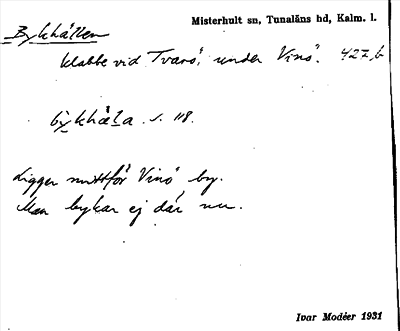 Misterhult sn, Tunaläns hd, Kalm. l.
Bykhällen
klabbe vid Tvarö, under Vinö. 427, b
bỳkhǽla s. 118.
Ligger mittför Vinö by.
Man bykar ej där nu.
Ivar Modéer 1931